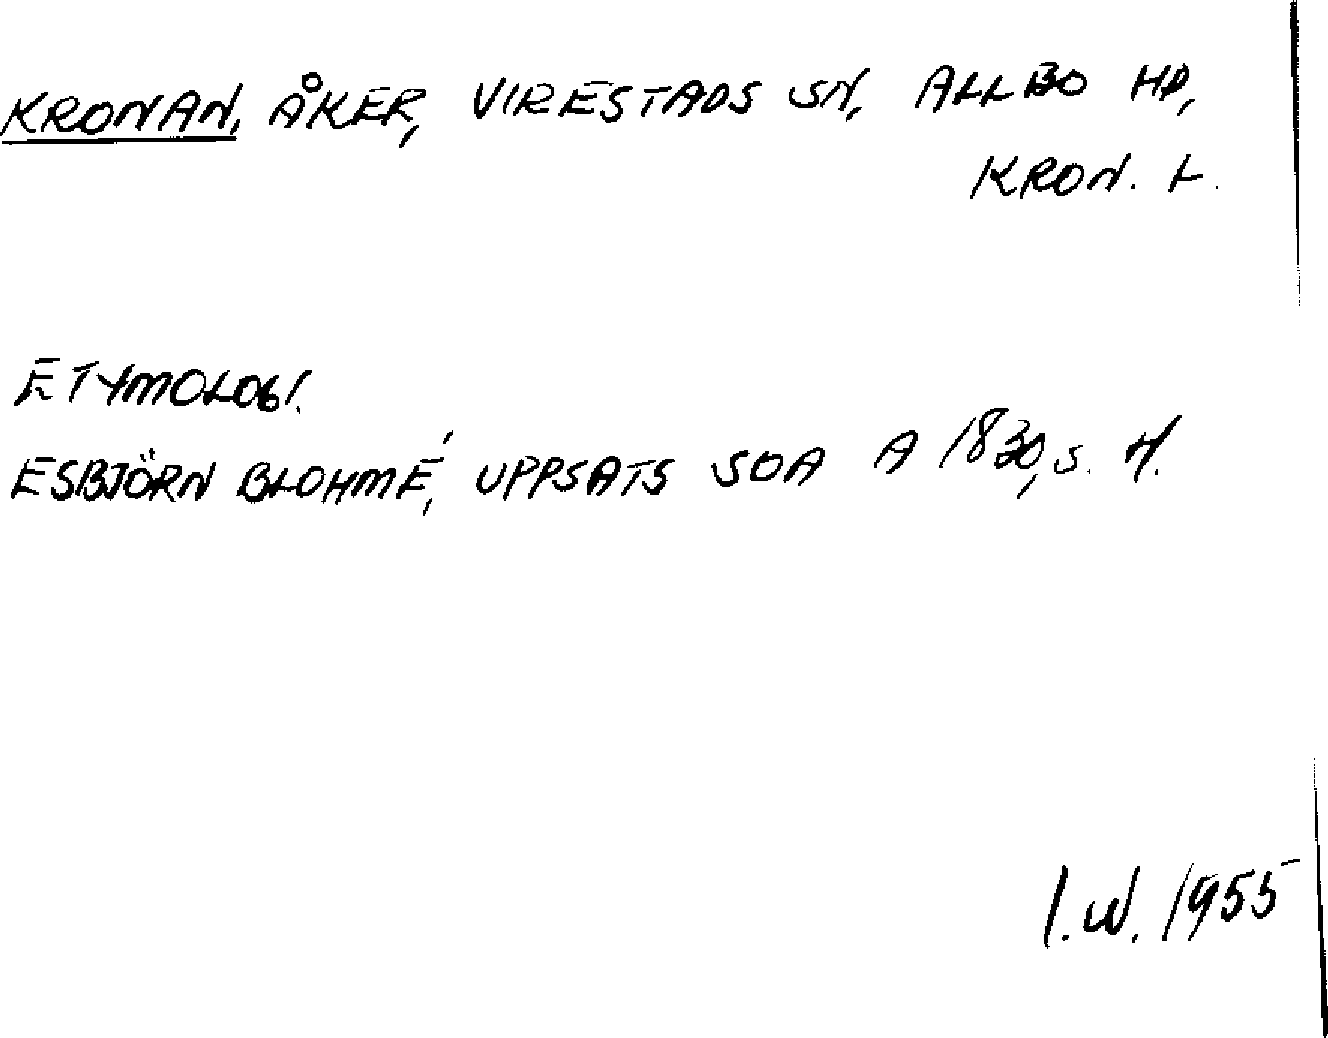 KRONAN, ÅKER, VIRESTADS SN, ALLBO HD,
KRON. L.
ETYMOLOGI.
ESBJÖRN BLOHMÉ, UPPSATS SOA A 1830, S.
I.W. 1955